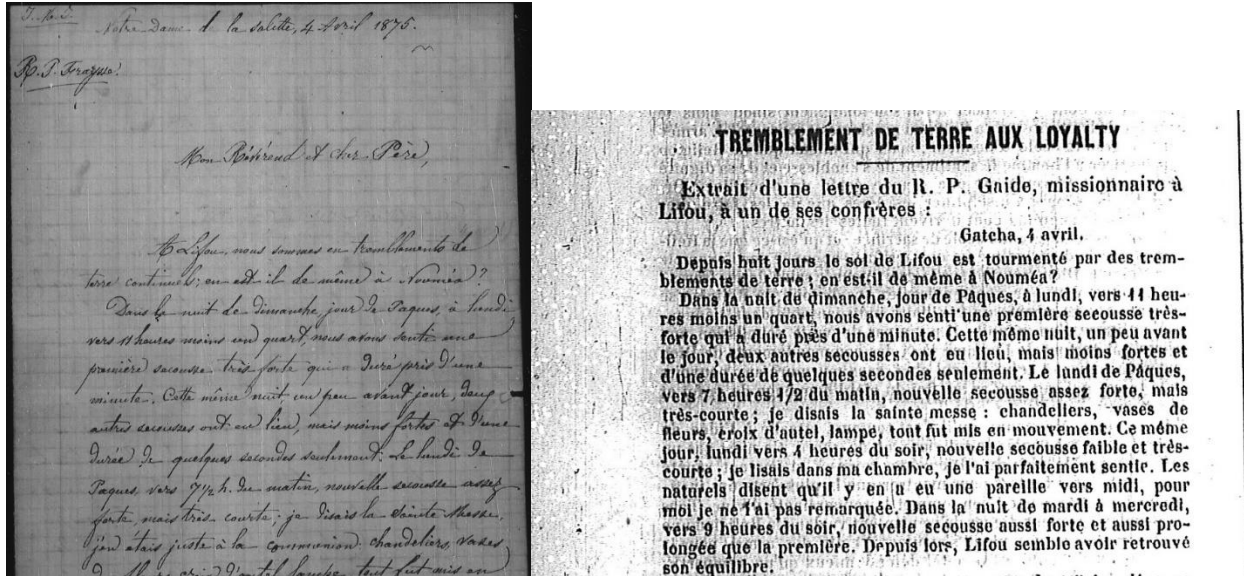 J. M. J.
Notre Dame de la Salette, 4 Avril 1875.
R. P. Fraysse.
Mon Révérend et cher Père,
A Lifou, nous sommes en tremblements de
terre continuels; en est-il de même à Nouméa?
Dans la nuit de dimanche, jour de Paques, à lundi
vers 11 heures moins un quart, nous avons senti une
première secousse très forte qui a duré près d'une
minute. Cette même nuit, un peu avant jour, deux
autres secousses ont eu lieu, mais moins fortes et d'une
durée de quelques secondes seulement. Le lundi de
Paques, vers 7 1/2 h. du matin, nouvelle secousse assez
forte, mais très courte; je disais la Sainte Messe,
j'en étais juste à la communion. chandeliers, vases
d'autel, tout fut mis en
TREMBLEMENT DE TERRE AUX LOYALTY
Extrait d'une lettre du R. P. Gaide, missionnaire à
Lifou, à un de ses confrères :
Gatcha, 4 avril.
Depuis huit jours le sol de Lifou est tourmenté par des trem-
blements de terre ; en est-il de même à Nouméa?
Dans la nuit de dimanche, jour de Pâques, à lundi, vers 11 heu-
res moins un quart, nous avons senti une première secousse très-
forte qui a duré près d'une minute. Cette même nuit, un peu avant
le jour, deux autres secousses ont eu lieu, mais moins fortes et
d'une durée de quelques secondes seulement. Le lundi de Pâques,
vers 7 heures 1/2 du matin, nouvelle secousse assez forte, mais
très-courte ; je disais la sainte messe : chandeliers, vases de
fleurs, croix d'autel, lampe, tout fut mis en mouvement. Ce même
jour, lundi vers 4 heures du soir, nouvelle secousse faible et très-
courte ; je lisais dans ma chambre, je l'ai parfaitement sentie. Les
naturels disent qu'il y en a eu une pareille vers midi, pour
moi je ne l'ai pas remarquée. Dans la nuit de mardi à mercredi,
vers 9 heures du soir, nouvelle secousse aussi forte et aussi pro-
longée que la première. Depuis lors, Lifou semble avoir retrouvé
son équilibre.